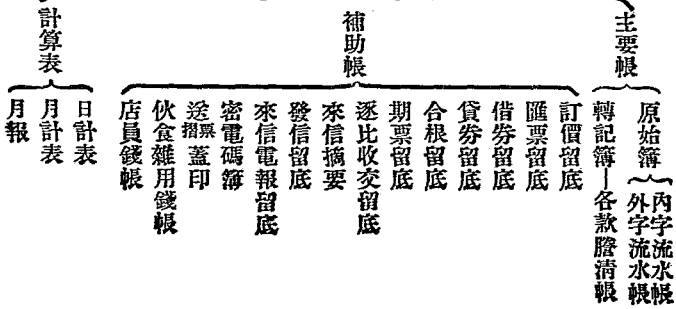 主要帳
原始簿
內字流水帳
外字流水帳
轉記簿—各款謄清帳
補助帳
訂價留底
匯票留底
借劵留底
貸劵留底
合根留底
期票留底
逐比收交留底
來信摘要
發信留底
來信電報留底
密電碼簿
送票摺蓋印
伙食雜用錢帳
店員錢帳
計算表
日計表
月計表
月報